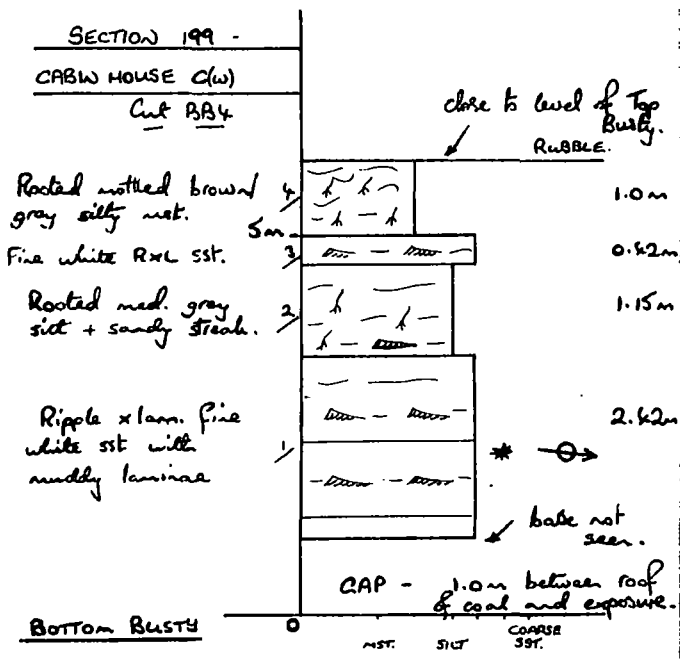 SECTION 199 -
CABIN HOUSE C(W)
Cut BB4
close to level of Top
Busty.
RUBBLE.
Rooted mottled brown/
grey silty mst.
4
1.0m
5m
Fine white RxL sst.
3
0.42m
Rooted med. grey
silt + sandy streak.
2
1.15m
Ripple xlam. fine
white sst with
muddy laminae
1
2.42m
base not
seen.
GAP - 1.0m between roof
of coal and exposure.
BOTTOM BUSTY
0
MST. SILT COARSE
SST.